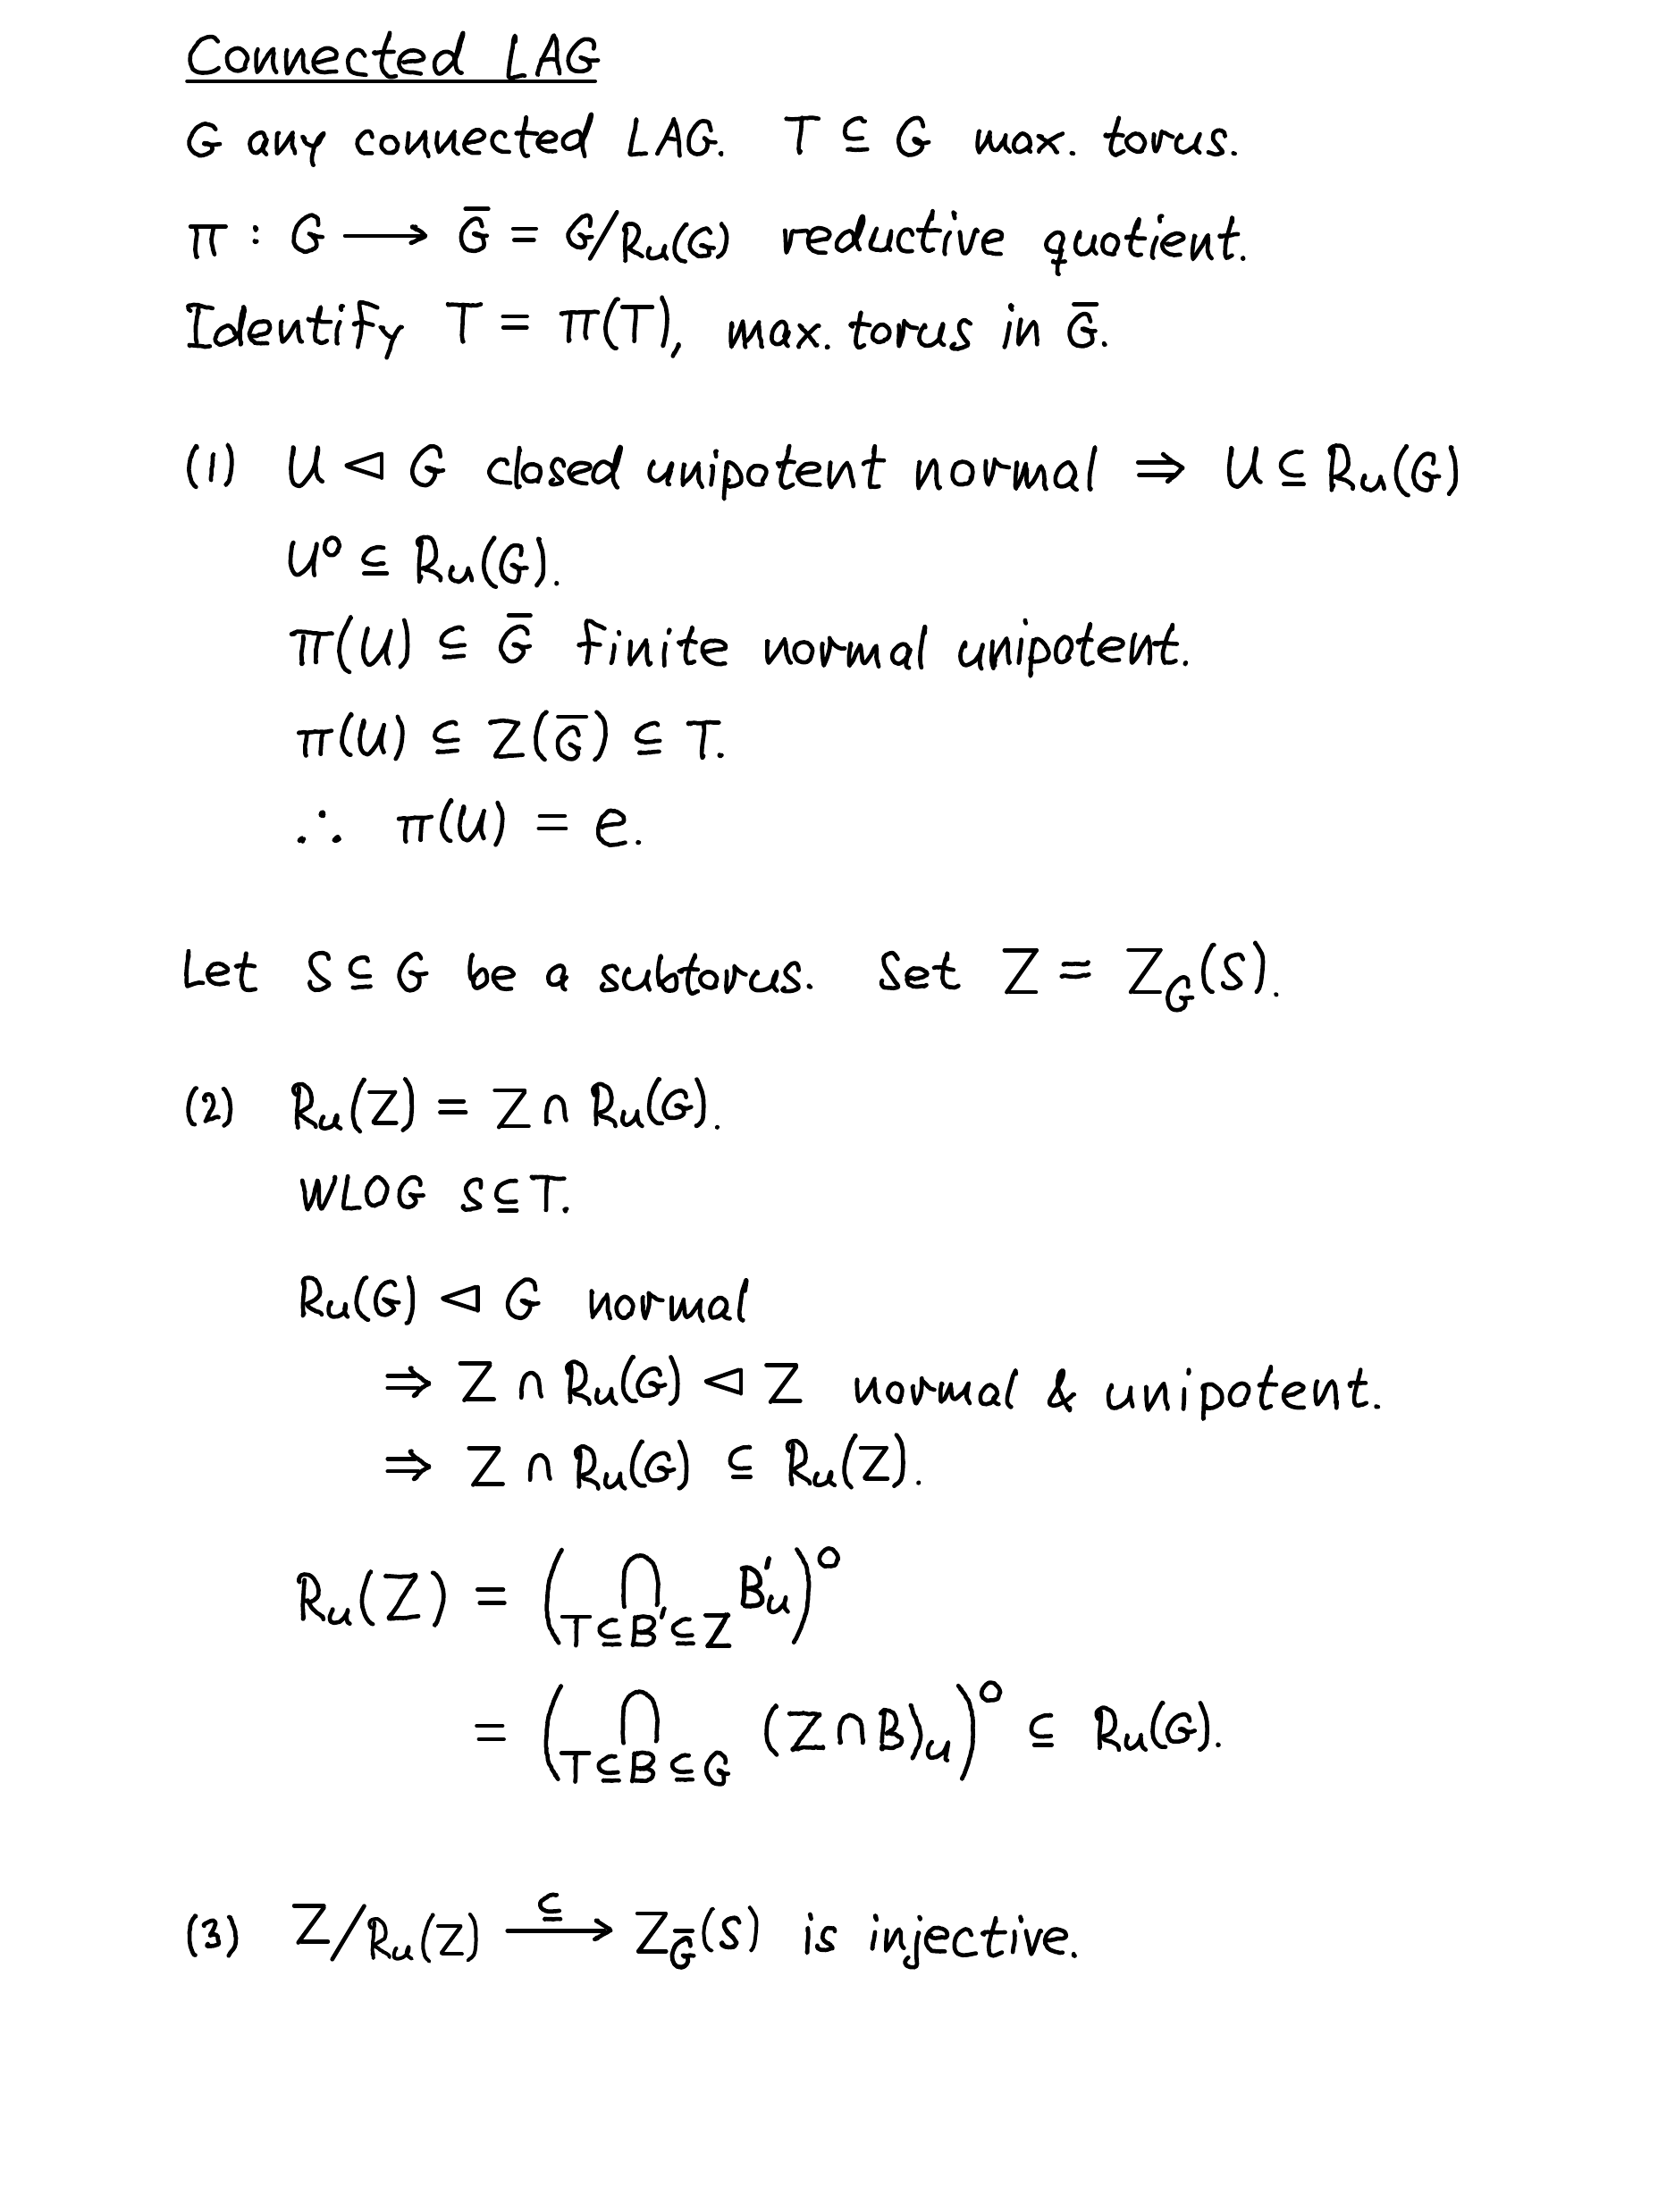 Connected LAG
G any connected LAG. T ⊆ G max. torus.
π : G ⟶ G̅ = G/Ru(G) reductive quotient.
Identify T = π(T), max. torus in G̅.
(1) U ⊲ G closed unipotent normal ⇒ U ⊆ Ru(G)
U° ⊆ Ru(G).
π(U) ⊆ G̅ finite normal unipotent.
π(U) ⊆ Z(G̅) ⊆ T.
∴ π(U) = e.
Let S ⊆ G be a subtorus. Set Z = Z_G(S).
(2) Ru(Z) = Z ∩ Ru(G).
WLOG S ⊆ T.
Ru(G) ⊲ G normal
⇒ Z ∩ Ru(G) ⊲ Z normal & unipotent.
⇒ Z ∩ Ru(G) ⊆ Ru(Z).
Ru(Z) = (⋂_{T⊆B'⊆Z} B'_u)°
= (⋂_{T⊆B⊆G} (Z∩B)_u)° ⊆ Ru(G).
(3) Z/Ru(Z) ⟶^{⊆} Z_G̅(S) is injective.